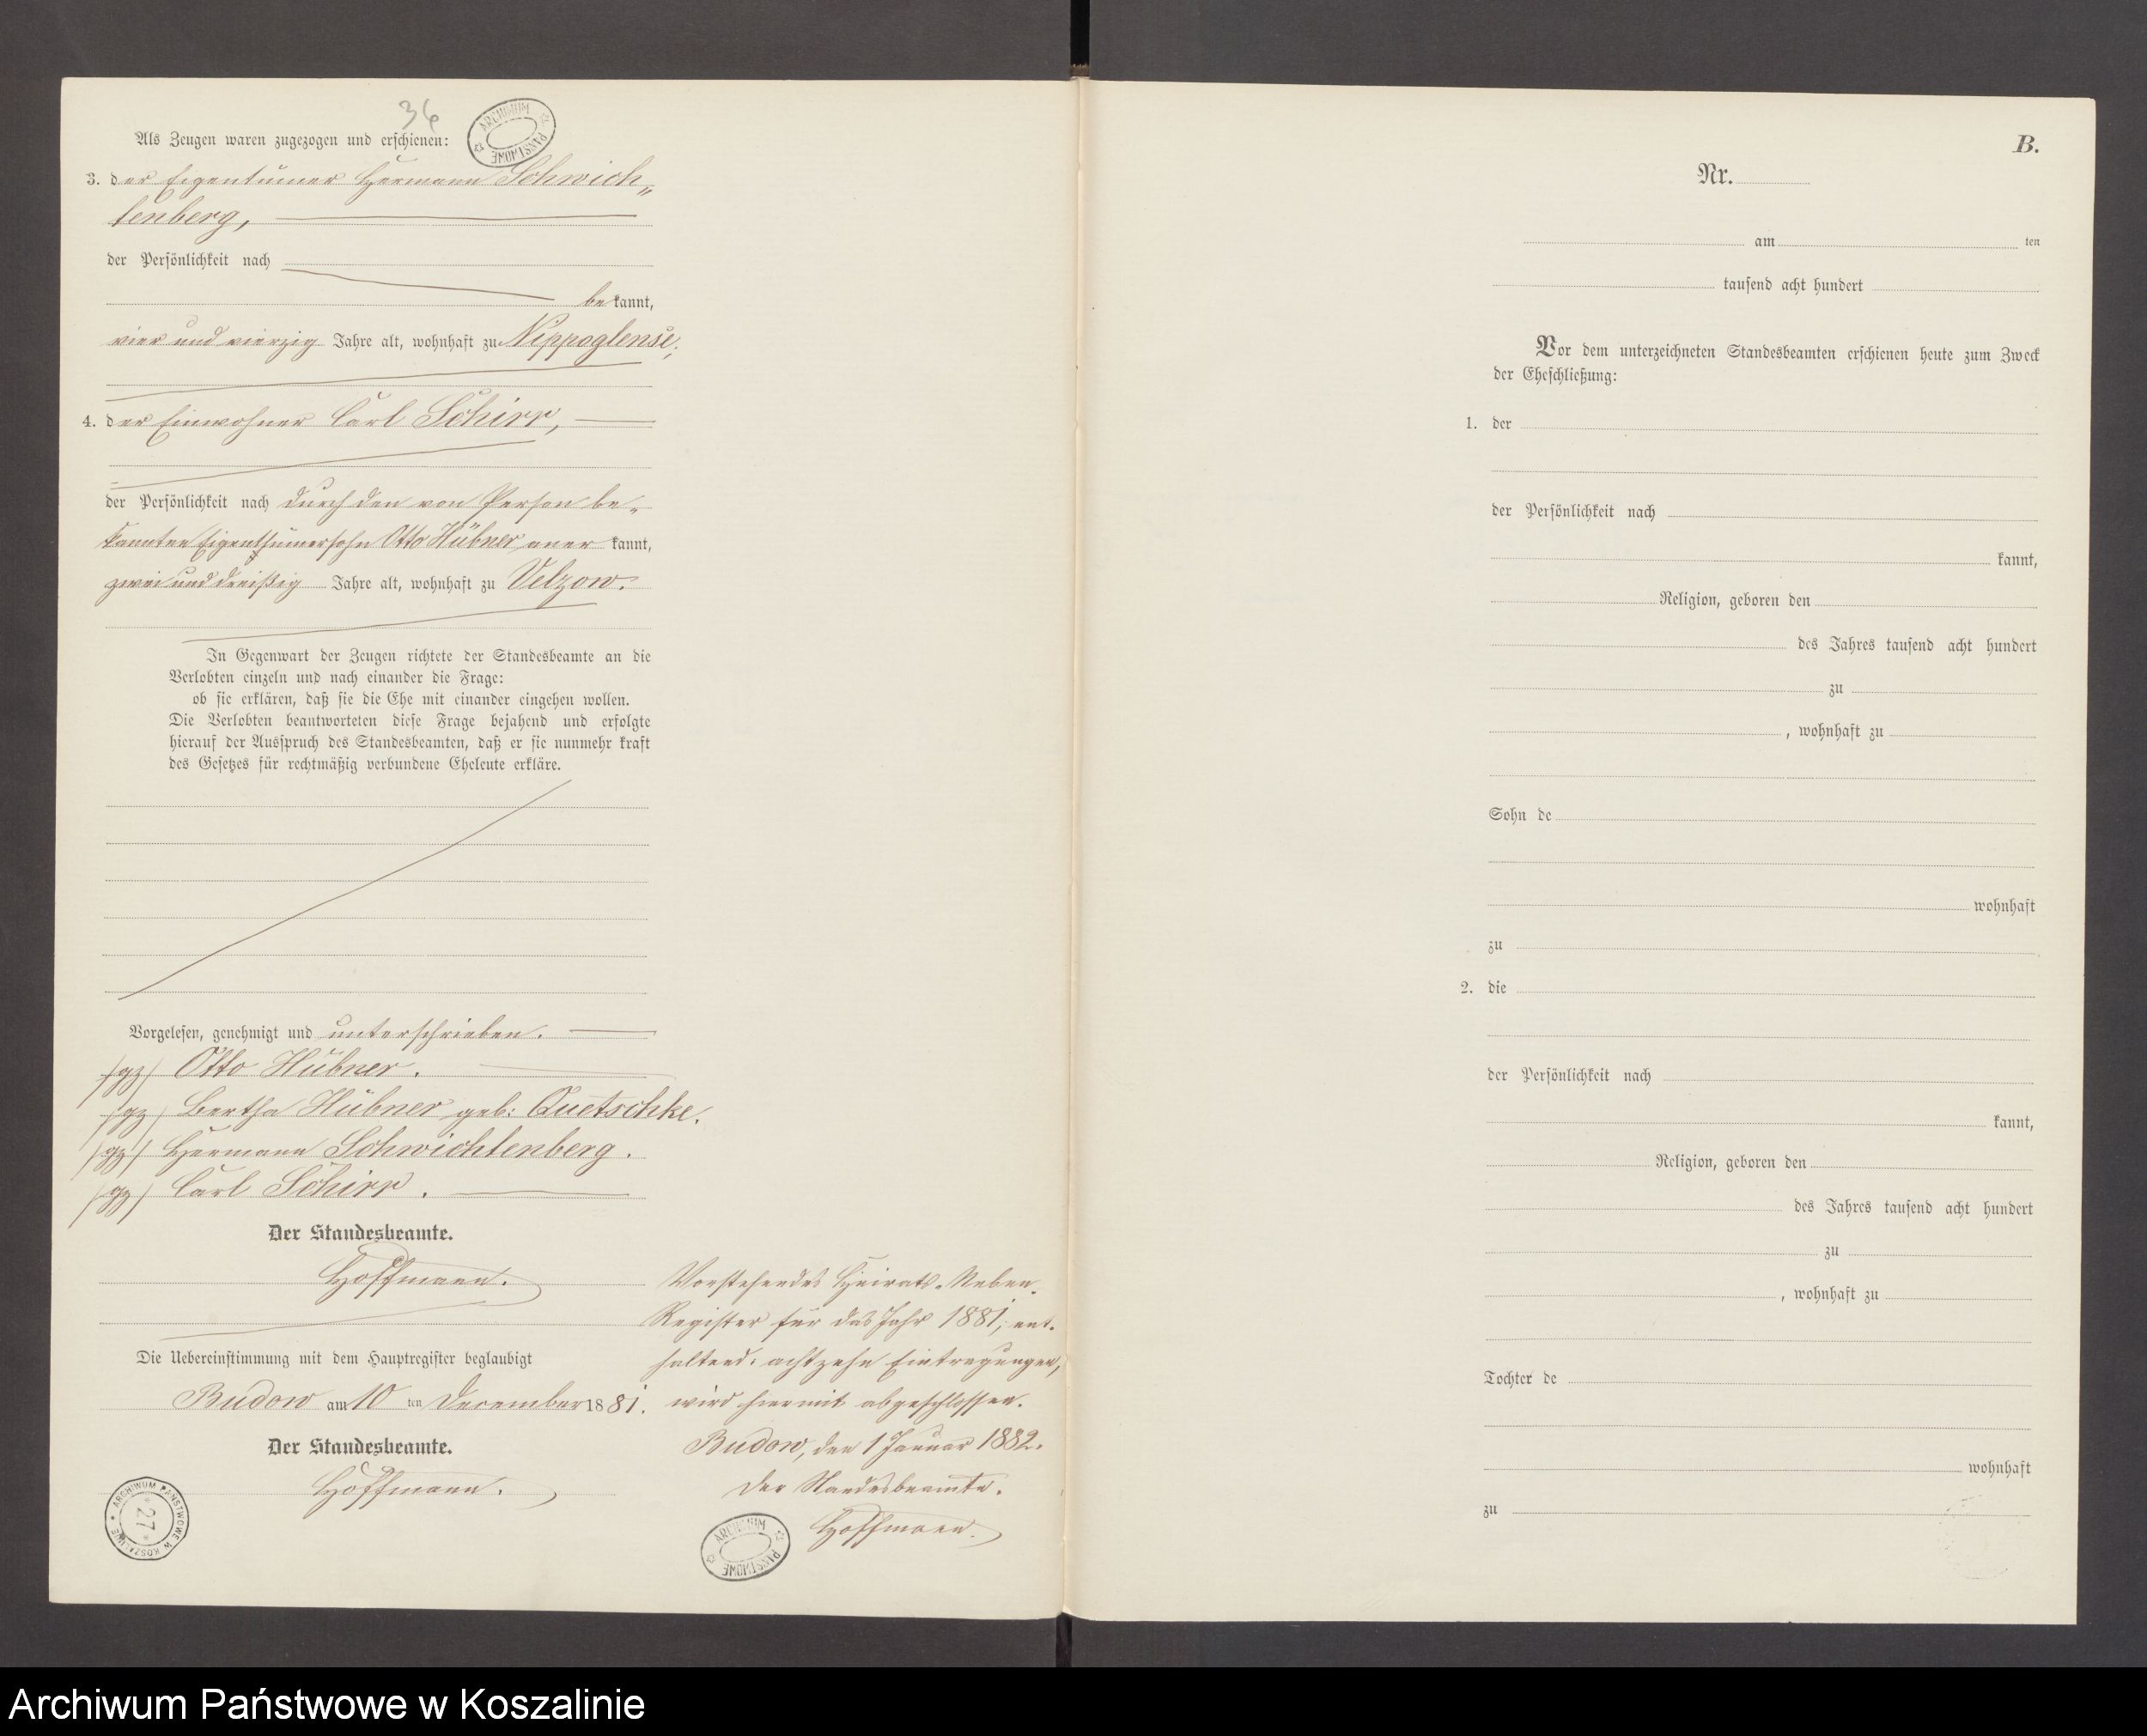 36
ARCHIWUM PAŃSTWOWE
Als Zeugen waren zugezogen und erschienen:
3. der Eigentümer Hermann Schwich„
tenberg,
der Persönlichkeit nach
be kannt,
vier und vierzig Jahre alt, wohnhaft zu Nippoglense,
4. der Einwohner Carl Schirr,
der Persönlichkeit nach durch den von Person be„
kannten Eigenthümersohn Otto Hübner aner kannt,
zwei und dreißig Jahre alt, wohnhaft zu Velzow.
In Gegenwart der Zeugen richtete der Standesbeamte an die
Verlobten einzeln und nach einander die Frage:
ob sie erklären, daß sie die Ehe mit einander eingehen wollen.
Die Verlobten beantworteten diese Frage bejahend und erfolgte
hierauf der Ausspruch des Standesbeamten, daß er sie nunmehr kraft
des Gesetzes für rechtmäßig verbundene Eheleute erkläre.
Vorgelesen, genehmigt und unterschrieben.
/gz/ Otto Hübner.
/gz/ Bertha Hübner geb: Quetschke.
/gz/ Hermann Schwichtenberg.
/gz/ Carl Schirr.
Der Standesbeamte.
Hoffmann.
Die Uebereinstimmung mit dem Hauptregister beglaubigt
Budow am 10 ten December 1881.
Der Standesbeamte.
Hoffmann.
ARCHIWUM PAŃSTWOWE W KOSZALINIE
27
Vorstehendes Heirats-Neben-
Register für das Jahr 1881, ent-
haltend: achtzehn Eintragungen,
wird hiermit abgeschlossen.
Budow, den 1 Januar 1882.
Der Standesbeamte.
Hoffmann.
ARCHIWUM PAŃSTWOWE
B.
Nr.
am ten
tausend acht hundert
Vor dem unterzeichneten Standesbeamten erschienen heute zum Zweck
der Eheschließung:
1. der
der Persönlichkeit nach
kannt,
Religion, geboren den
des Jahres tausend acht hundert
zu
, wohnhaft zu
Sohn de
wohnhaft
zu
2. die
der Persönlichkeit nach
kannt,
Religion, geboren den
des Jahres tausend acht hundert
zu
, wohnhaft zu
Tochter de
wohnhaft
zu
Archiwum Państwowe w Koszalinie